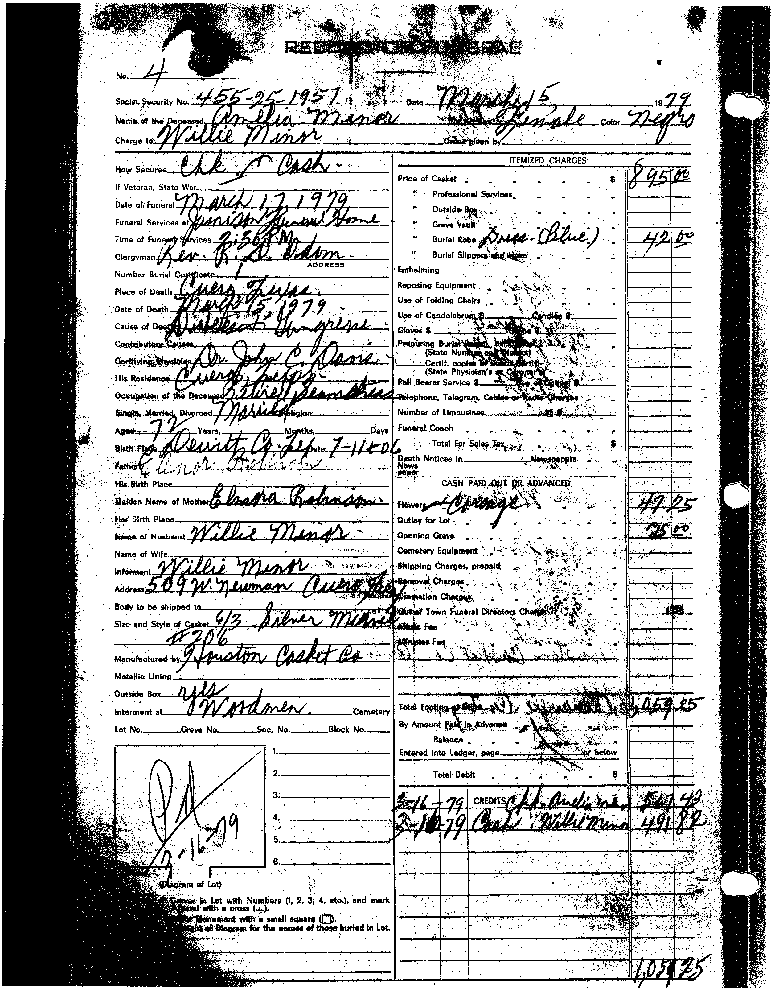 RECORD OF FUNERAL
No. 4
Social Security No. 455-25-1957 Date March 15, 1979
Name of the Deceased Amelia Minor Female Color Negro
Charge to Willie Minor Order given by
How Secured Chk & Cash
If Veteran, State War
Date of Funeral March 17 1979
Funeral Services at Funeral Home
Time of Funeral Services 2:30 P.M.
Clergyman Rev. R. D. Odom
ADDRESS
Number Burial Certificate
Place of Death Cuero Texas
Date of Death March 15 1979
Cause of Death Gangrene
Contributory Causes
Certifying Physician Dr. John C. Davis
His Residence Cuero, Texas
Occupation of the Deceased Retired Seamstress
Single, Married, Divorced Married Religion
Aged 72 Years, Months, Days
Birth Place Dewitt Co. 7-11-06
Father Robinson
His Birth Place
Maiden Name of Mother Elnora Robinson
Her Birth Place
Name of Husband Willie Minor
Name of Wife
Informant Willie Minor
Address 509 W. Newman Cuero
Body to be shipped to
Size and Style of Casket 6/3 Silver
#206
Manufactured by Houston Casket Co
Metallic Lining
Outside Box yes
Interment at Woodmen Cemetery
Lot No. Grave No. Sec. No. Block No.
1.
2.
3.
4.
5.
6.
Pd
3-16-79
(Diagram of Lot)
in Lot with Numbers (1, 2, 3, 4, etc.), and mark
with a cross
Monument with a small square
of Diagram for the names of those buried in Lot.
ITEMIZED CHARGES
Price of Casket $ 895 00
" Professional Services
" Outside Box
" Grave Vault
" Burial Robe Dress (Blue) 42 00
" Burial Slippers and Hose
Embalming
Reposing Equipment
Use of Folding Chairs
Use of Candelabrum $ Candles $
Gloves $
(State Number and District)
Certif. copies
(State Physician's or Coroner's)
Pall Bearer Service $
Telephone, Telegram, Cables or Radio Charges
Number of Limousines
Funeral Coach
Total For Sales Tax $
Death Notices in Newspapers
News
paper
CASH PAID OUT OR ADVANCED
Flowers 47 25
Outlay for Lot
Opening Grave 75 00
Cemetery Equipment
Shipping Charges, prepaid
Removal Charges
Cremation Charges
Out of Town Funeral Directors Charge
Total Footing 1,059.25
By Amount Paid in Advance
Balance
Entered into Ledger, page or below
Total Debit $
3-16-79 CREDITS Chk. 567 43
3-16-79 Cash Willie Minor 491 82
1,059 25